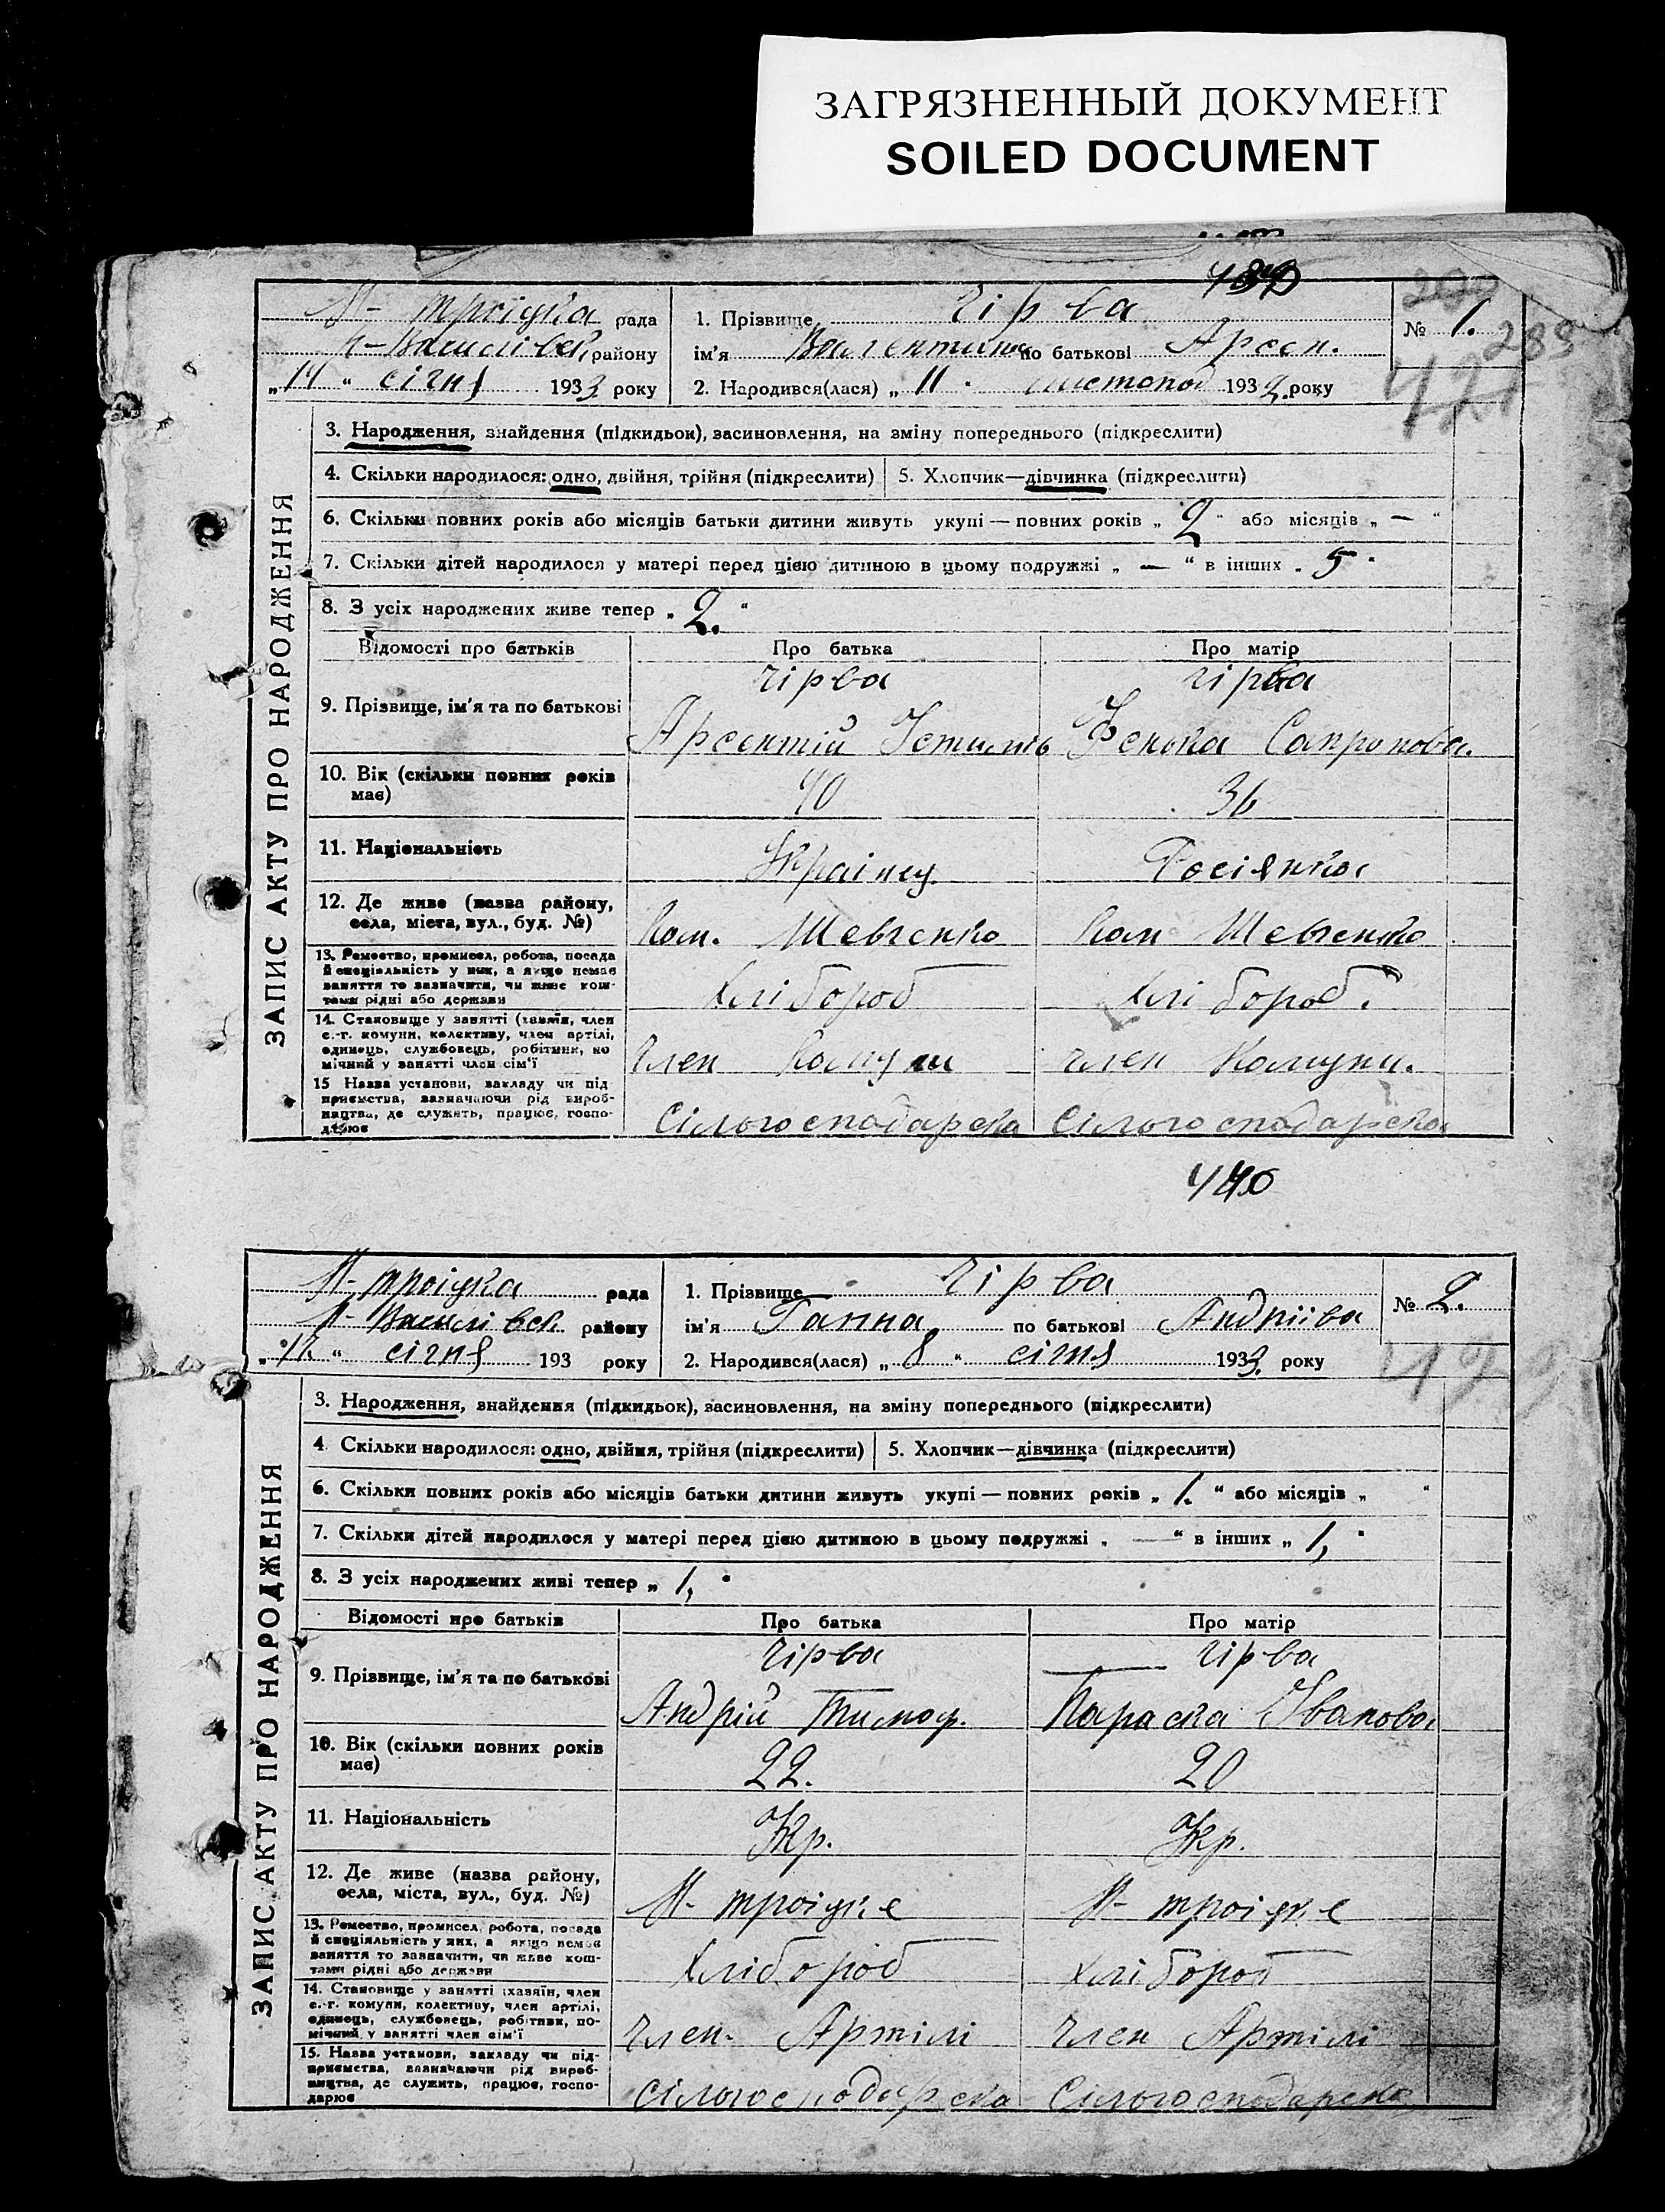 ЗАГРЯЗНЕННЫЙ ДОКУМЕНТ
SOILED DOCUMENT
ЗАПИС АКТУ ПРО НАРОДЖЕННЯ
М- троіцка рада
району
„14“ січня 1933 року
1. Прізвище Чірва
ім'я Валентина по батькові Арсен.
2. Народився(лася) „11“ листопад 1932 року
№ 1.
283
3. Народження, знайдення (підкидьок), засиновлення, на зміну попереднього (підкреслити)
4. Скільки народилося: одно, двійня, трійня (підкреслити) 5. Хлопчик—дівчинка (підкреслити)
6. Скільки повних років або місяців батьки дитини живуть укупі — повних років „2“ або місяців „—“
7. Скільки дітей народилося у матері перед цією дитиною в цьому подружжі „—“ в інших „5“
8. З усіх народжених живе тепер „2.“
Відомості про батьків Про батька Про матір
9. Прізвище, ім'я та по батькові
Чірва Чірва
Арсентій Фенька
10. Вік (скільки повних років має) 40 36
11. Національність Українец Росіянка
12. Де живе (назва району, села, міста, вул., буд. №) Ком. Шевченко Ком Шевченко
13. Ремество, промисел, робота, посада
й спеціальність у них, а якщо немає
заняття то зазначити, чи живе кош-
тами рідні або держави
Хлібороб Хлібороб.
14. Становище у занятті (хазяїн, член
с.-г. комуни, колективу, член артілі,
одинець, службовець, робітник, по
мічний у занятті член сім'ї
член Комуни член Комуни.
15 Назва установи, закладу чи під
приємства, зазначаючи рід вироб-
ництва, де служить, працює, госпо-
дарює
Сільгосподарска Сільгосподарска
440
ЗАПИС АКТУ ПРО НАРОДЖЕННЯ
М- троіцка рада
району
січня 193 року
1. Прізвище Чірва
ім'я Ганна по батькові Андріїва
2. Народився(лася) „8“ січня 1933 року
№ 2.
3. Народження, знайдення (підкидьок), засиновлення, на зміну попереднього (підкреслити)
4 Скільки народилося: одно, двійня, трійня (підкреслити) 5. Хлопчик—дівчинка (підкреслити)
6. Скільки повних років або місяців батьки дитини живуть укупі — повних років „1.“ або місяців „ “
7. Скільки дітей народилося у матері перед цією дитиною в цьому подружжі „—“ в інших „1,“
8. З усіх народжених живі тепер „1,“
Відомості про батьків Про батька Про матір
9. Прізвище, ім'я та по батькові
Чірва Чірва
Андрій Тимоф. Параска Іванова
10. Вік (скільки повних років має) 22. 20
11. Національність Укр. Укр.
12. Де живе (назва району, села, міста, вул., буд. №) М- троіцке М- троіцке
13. Ремество, промисел, робота, посада
й спеціяльність у них, а якщо немає
заняття то зазначити, чи живе кош-
тами рідні або держави
Хлібороб Хлібороб
14. Становище у занятті (хазяїн, член
с.-г. комуни, колективу, член артілі,
одинець, службовець, робітник, по-
мічний у занятті член сім'ї
член Артілі член Артілі
15. Назва установи, закладу чи під-
приємства, зазначаючи рід вироб-
ництва, де служить, працює, госпо-
дарює
Сільгосподарска Сільгосподарска